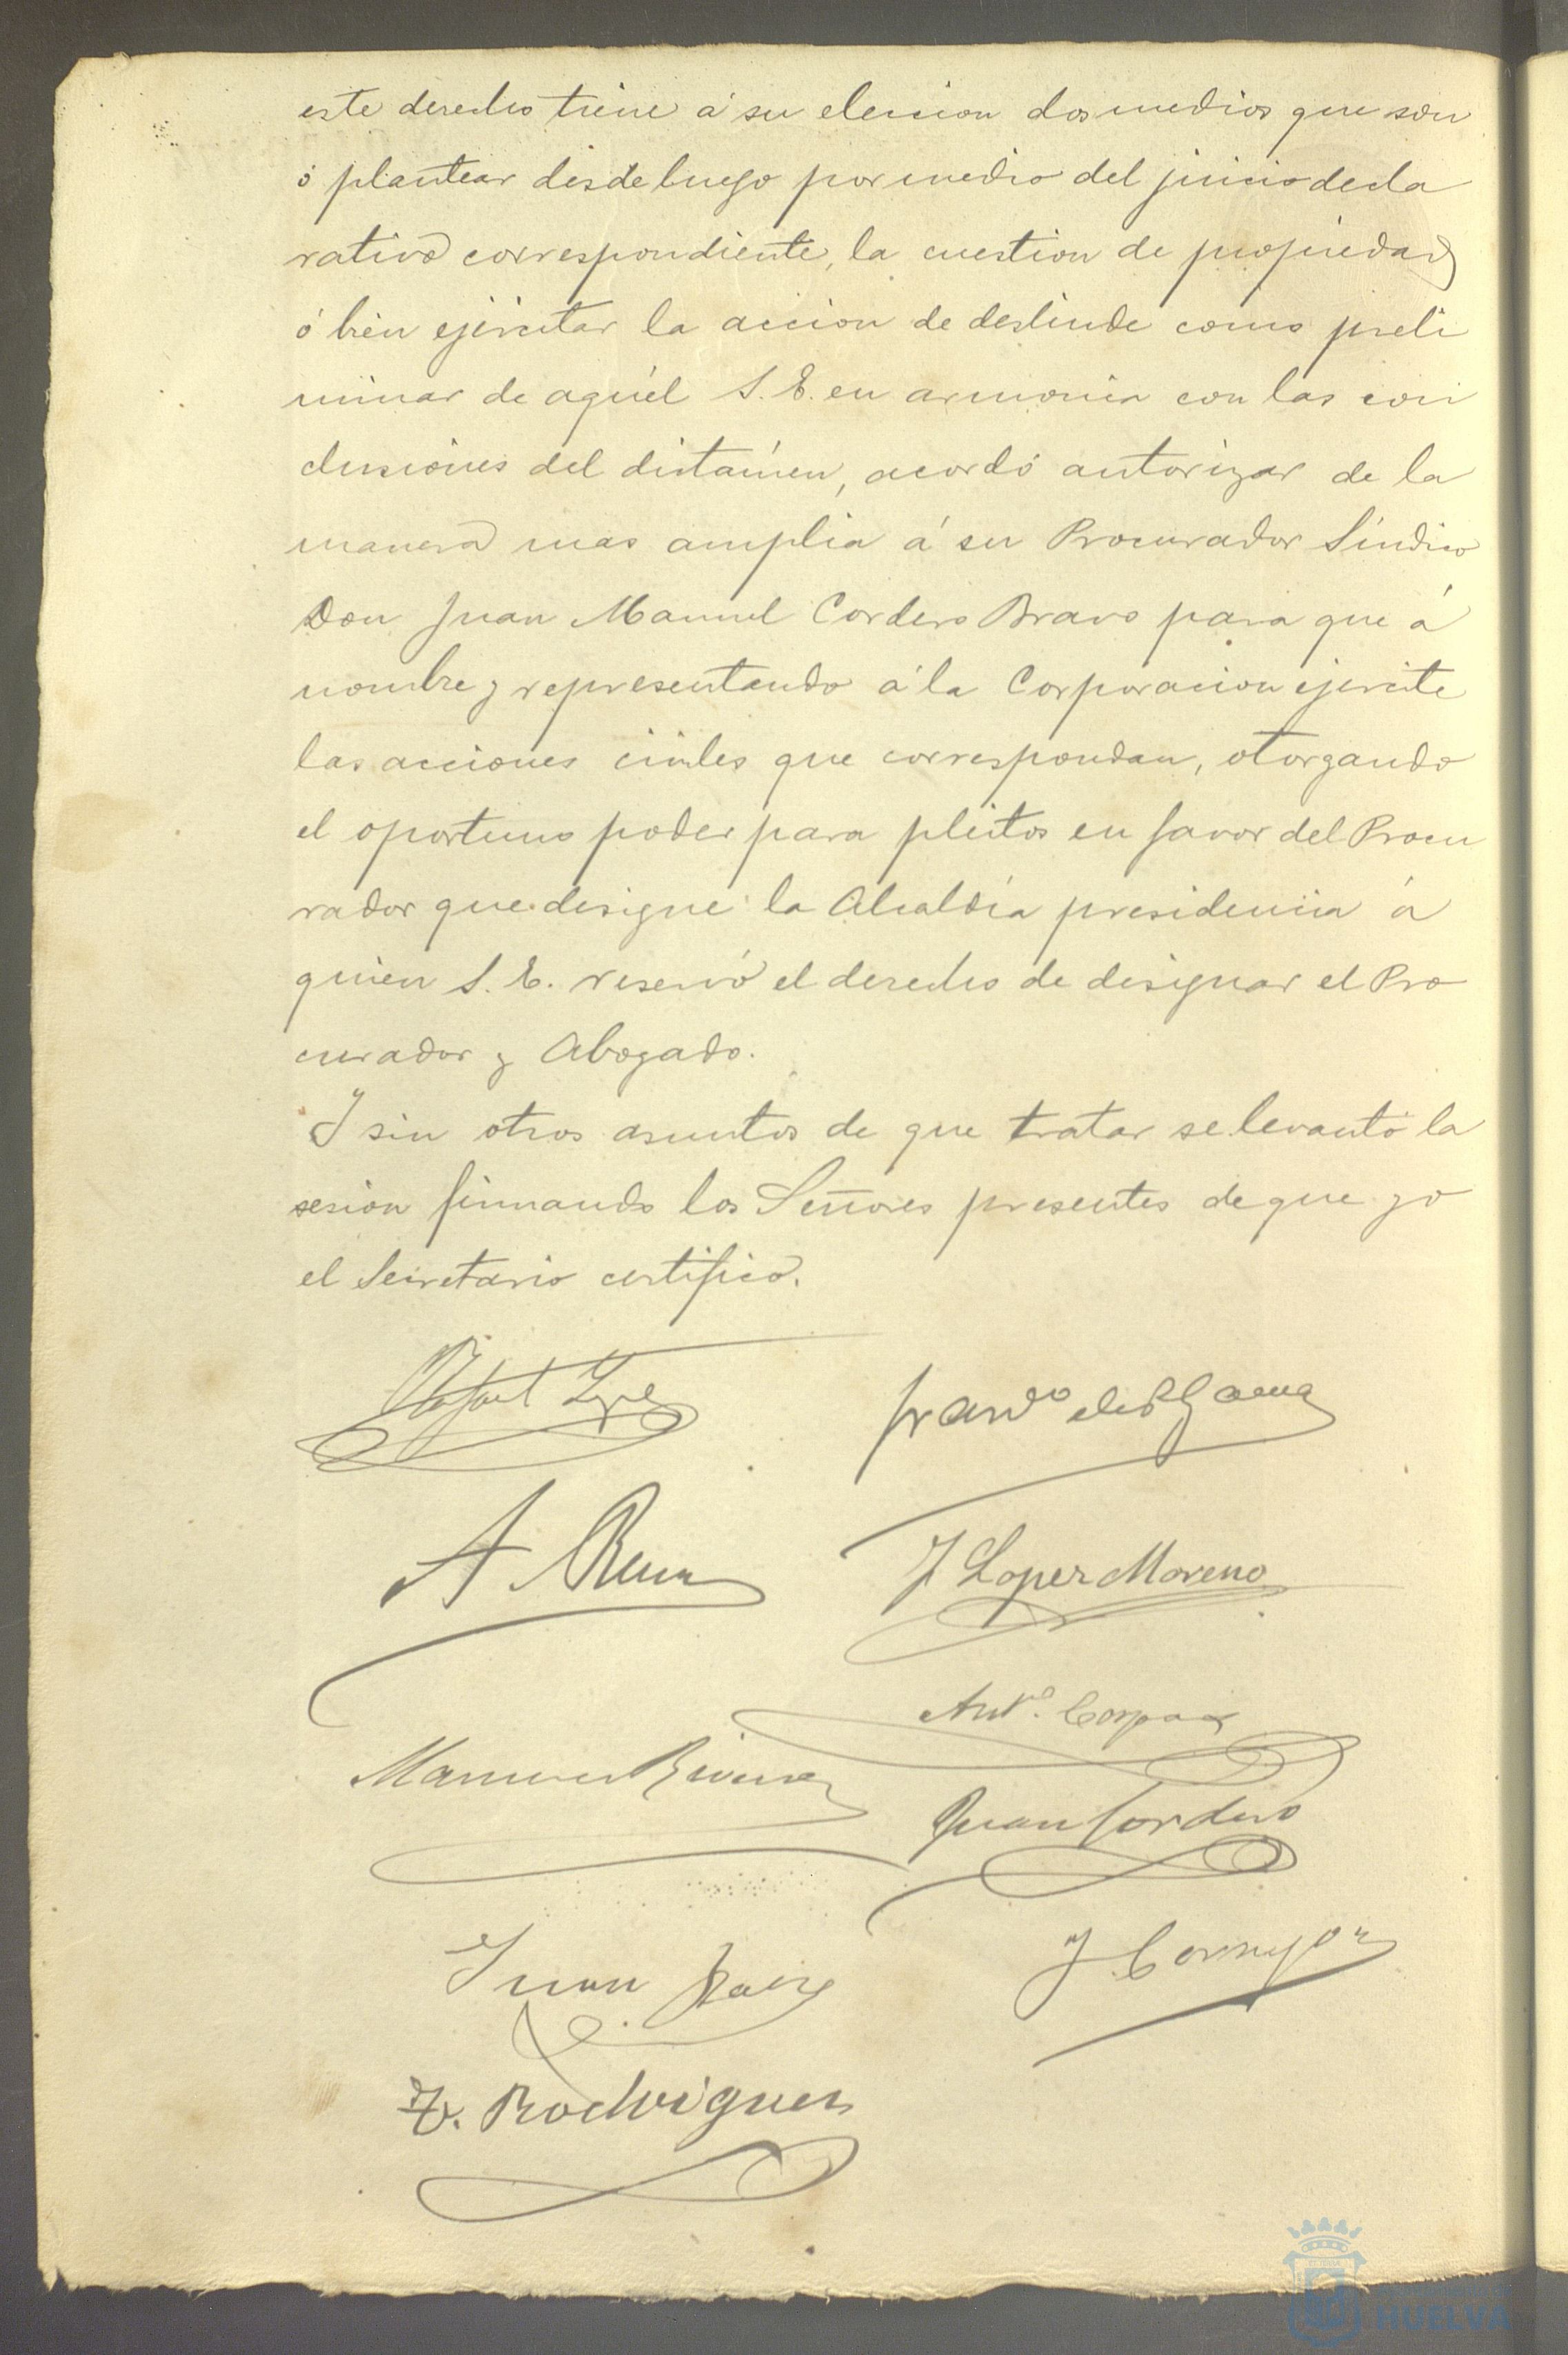 este derecho tiene á su eleccion dos medios que son
ó plantear desde luego por medio del juicio decla
rativo correspondiente, la cuestion de propiedad
ó bien ejercitar la accion de deslinde como preli
minar de aquél S. E. en armonia con las con
clusiones del dictámen, acordó autorizar de la
manera mas amplia á su Procurador Síndico
Don Juan Manuel Cordero Bravo para que á
nombre y representando á la Corporacion ejercite
las acciones civiles que correspondan, otorgando
el oportuno poder para pleitos en favor del Procu
rador que designe la Alcaldía presidencia á
quien S. E. reservó el derecho de designar el Pro
curador y Abogado.
Y sin otros asuntos de que tratar se levantó la
sesion firmando los Señores presentes de que yo
el Secretario certifico.
Rafael
Franco de P
A
J Lopez Moreno
Anto. Corpas
Manuel Rivera
Juan Cordero
Juan
J
F. Rodriguez
HUELVA